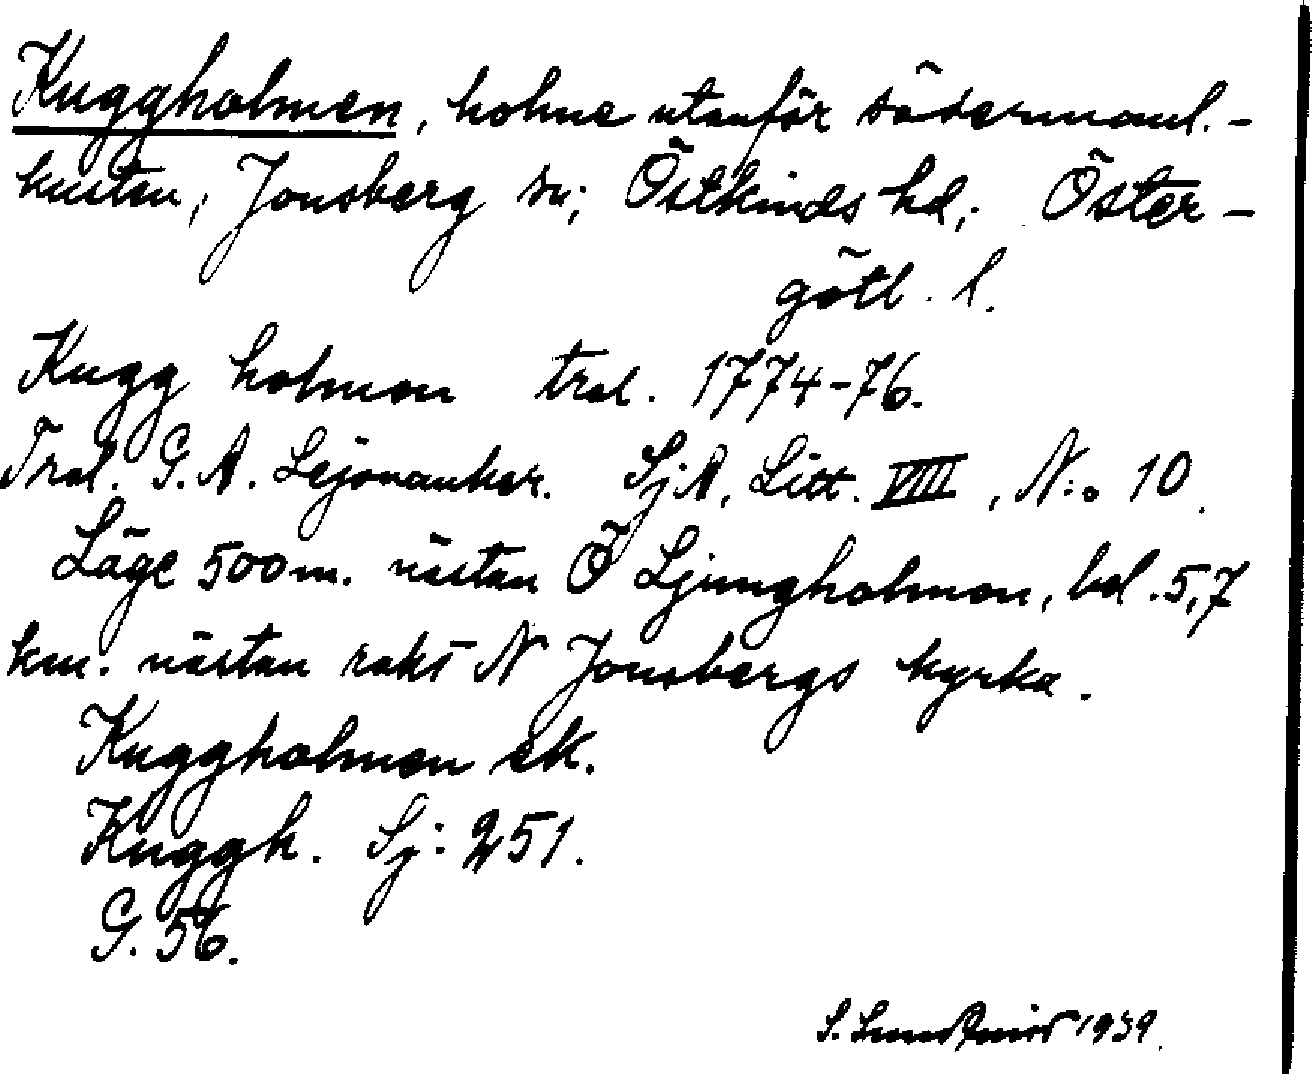 Kuggholmen, holme utanför södermanl.-
kusten, Jonsberg sn; Östkinds hd; Öster-
götl. l.
Kugg holmen trol. 1774-76.
Trol. G. A. Lejonanker. SjA, Litt. VIII, N:o 10.
Läge 500 m. nästan Ö Ljungholmen, bel. 5,7
km. nästan rakt N Jonsbergs kyrka.
Kuggholmen ek.
Kuggh. Sj: 251.
G. 56.
S. 1939.